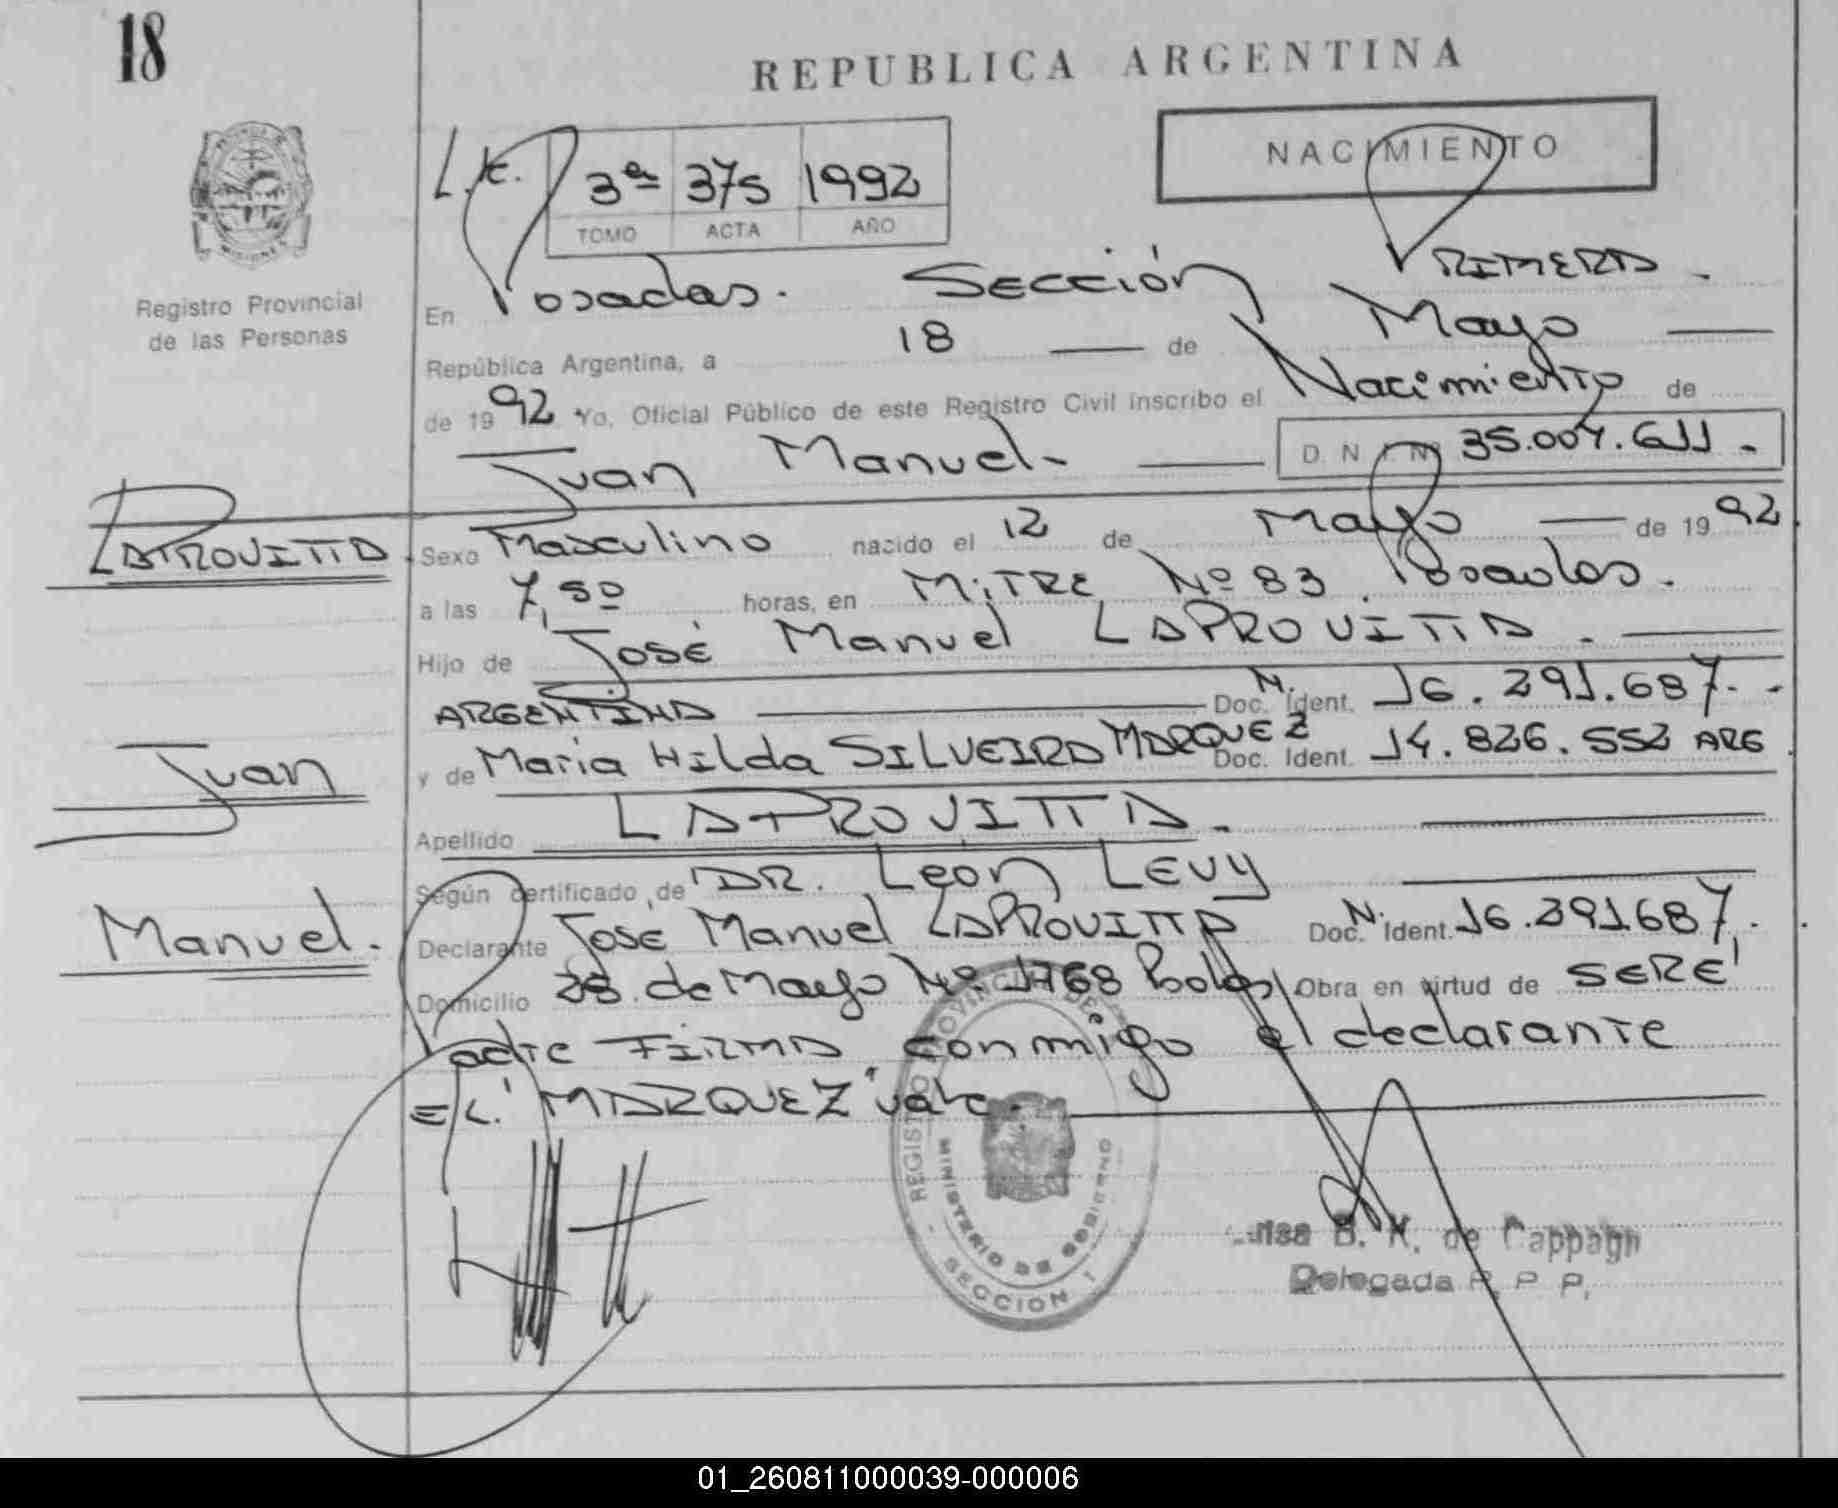 18
REPUBLICA ARGENTINA
NACIMIENTO
3ª 375 1992
TOMO ACTA AÑO
Registro Provincial
de las Personas
En Posadas. Sección PRIMERA.
República Argentina, a 18 de Mayo
de 1992 Yo, Oficial Público de este Registro Civil inscribo el Nacimiento de
Juan Manuel- D. N. I. Nº 35.004.611.-
LAPROVITTA
Sexo Masculino nacido el 12 de Mayo de 1992
a las 7,50 horas, en MiTRE Nº 83. Posadas.
Hijo de José Manuel LAPROVITTA.
ARGENTINA Doc. N. Ident. 16.291.687.-
Juan
y de Maria Hilda SILVEIRA MARQUEZ Doc. Ident. 14.826.552 ARG
Apellido LAPROVITTA.
Según certificado de DR. León LEVY
Manuel.
Declarante José Manuel LAPROVITTA Doc. N. Ident. 16.291687.
Domicilio 28 de Mayo Nº 1768 Obra en virtud de SER EL
Padre FIRMA conmigo el declarante
E/L. "MARQUEZ" vale.
REGISTRO PROVINCIAL DE
MINISTERIO DE GOBIERNO
SECCION 1
B. K. de
Delegada R. P. P.
01_260811000039-000006